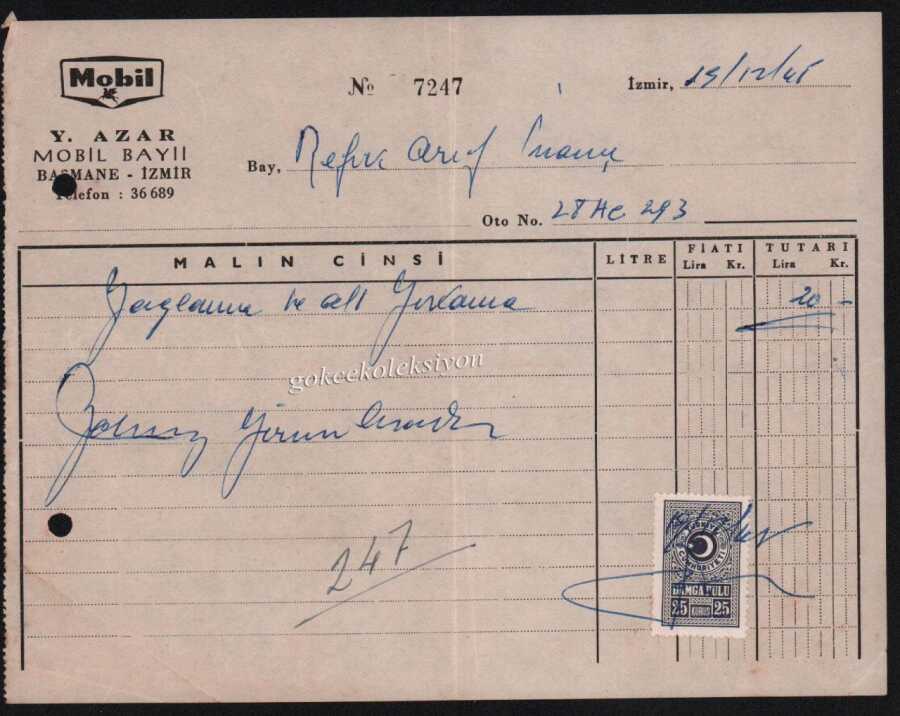 Mobil
Y. AZAR
MOBİL BAYII
BASMANE - İZMİR
Telefon : 36 689
№ 7247
İzmir, 19/12/
Bay, Refik Arif İnanç
Oto No. 28 Ac 293
MALIN CİNSİ
LİTRE
FİATI
Lira Kr.
TUTARI
Lira Kr.
Yağlama ve alt Yıkama
20 -
gokcekoleksiyon
247
TÜRKİYE
CUMHURİYETİ
DAMGA PULU
25 KURUŞ 25